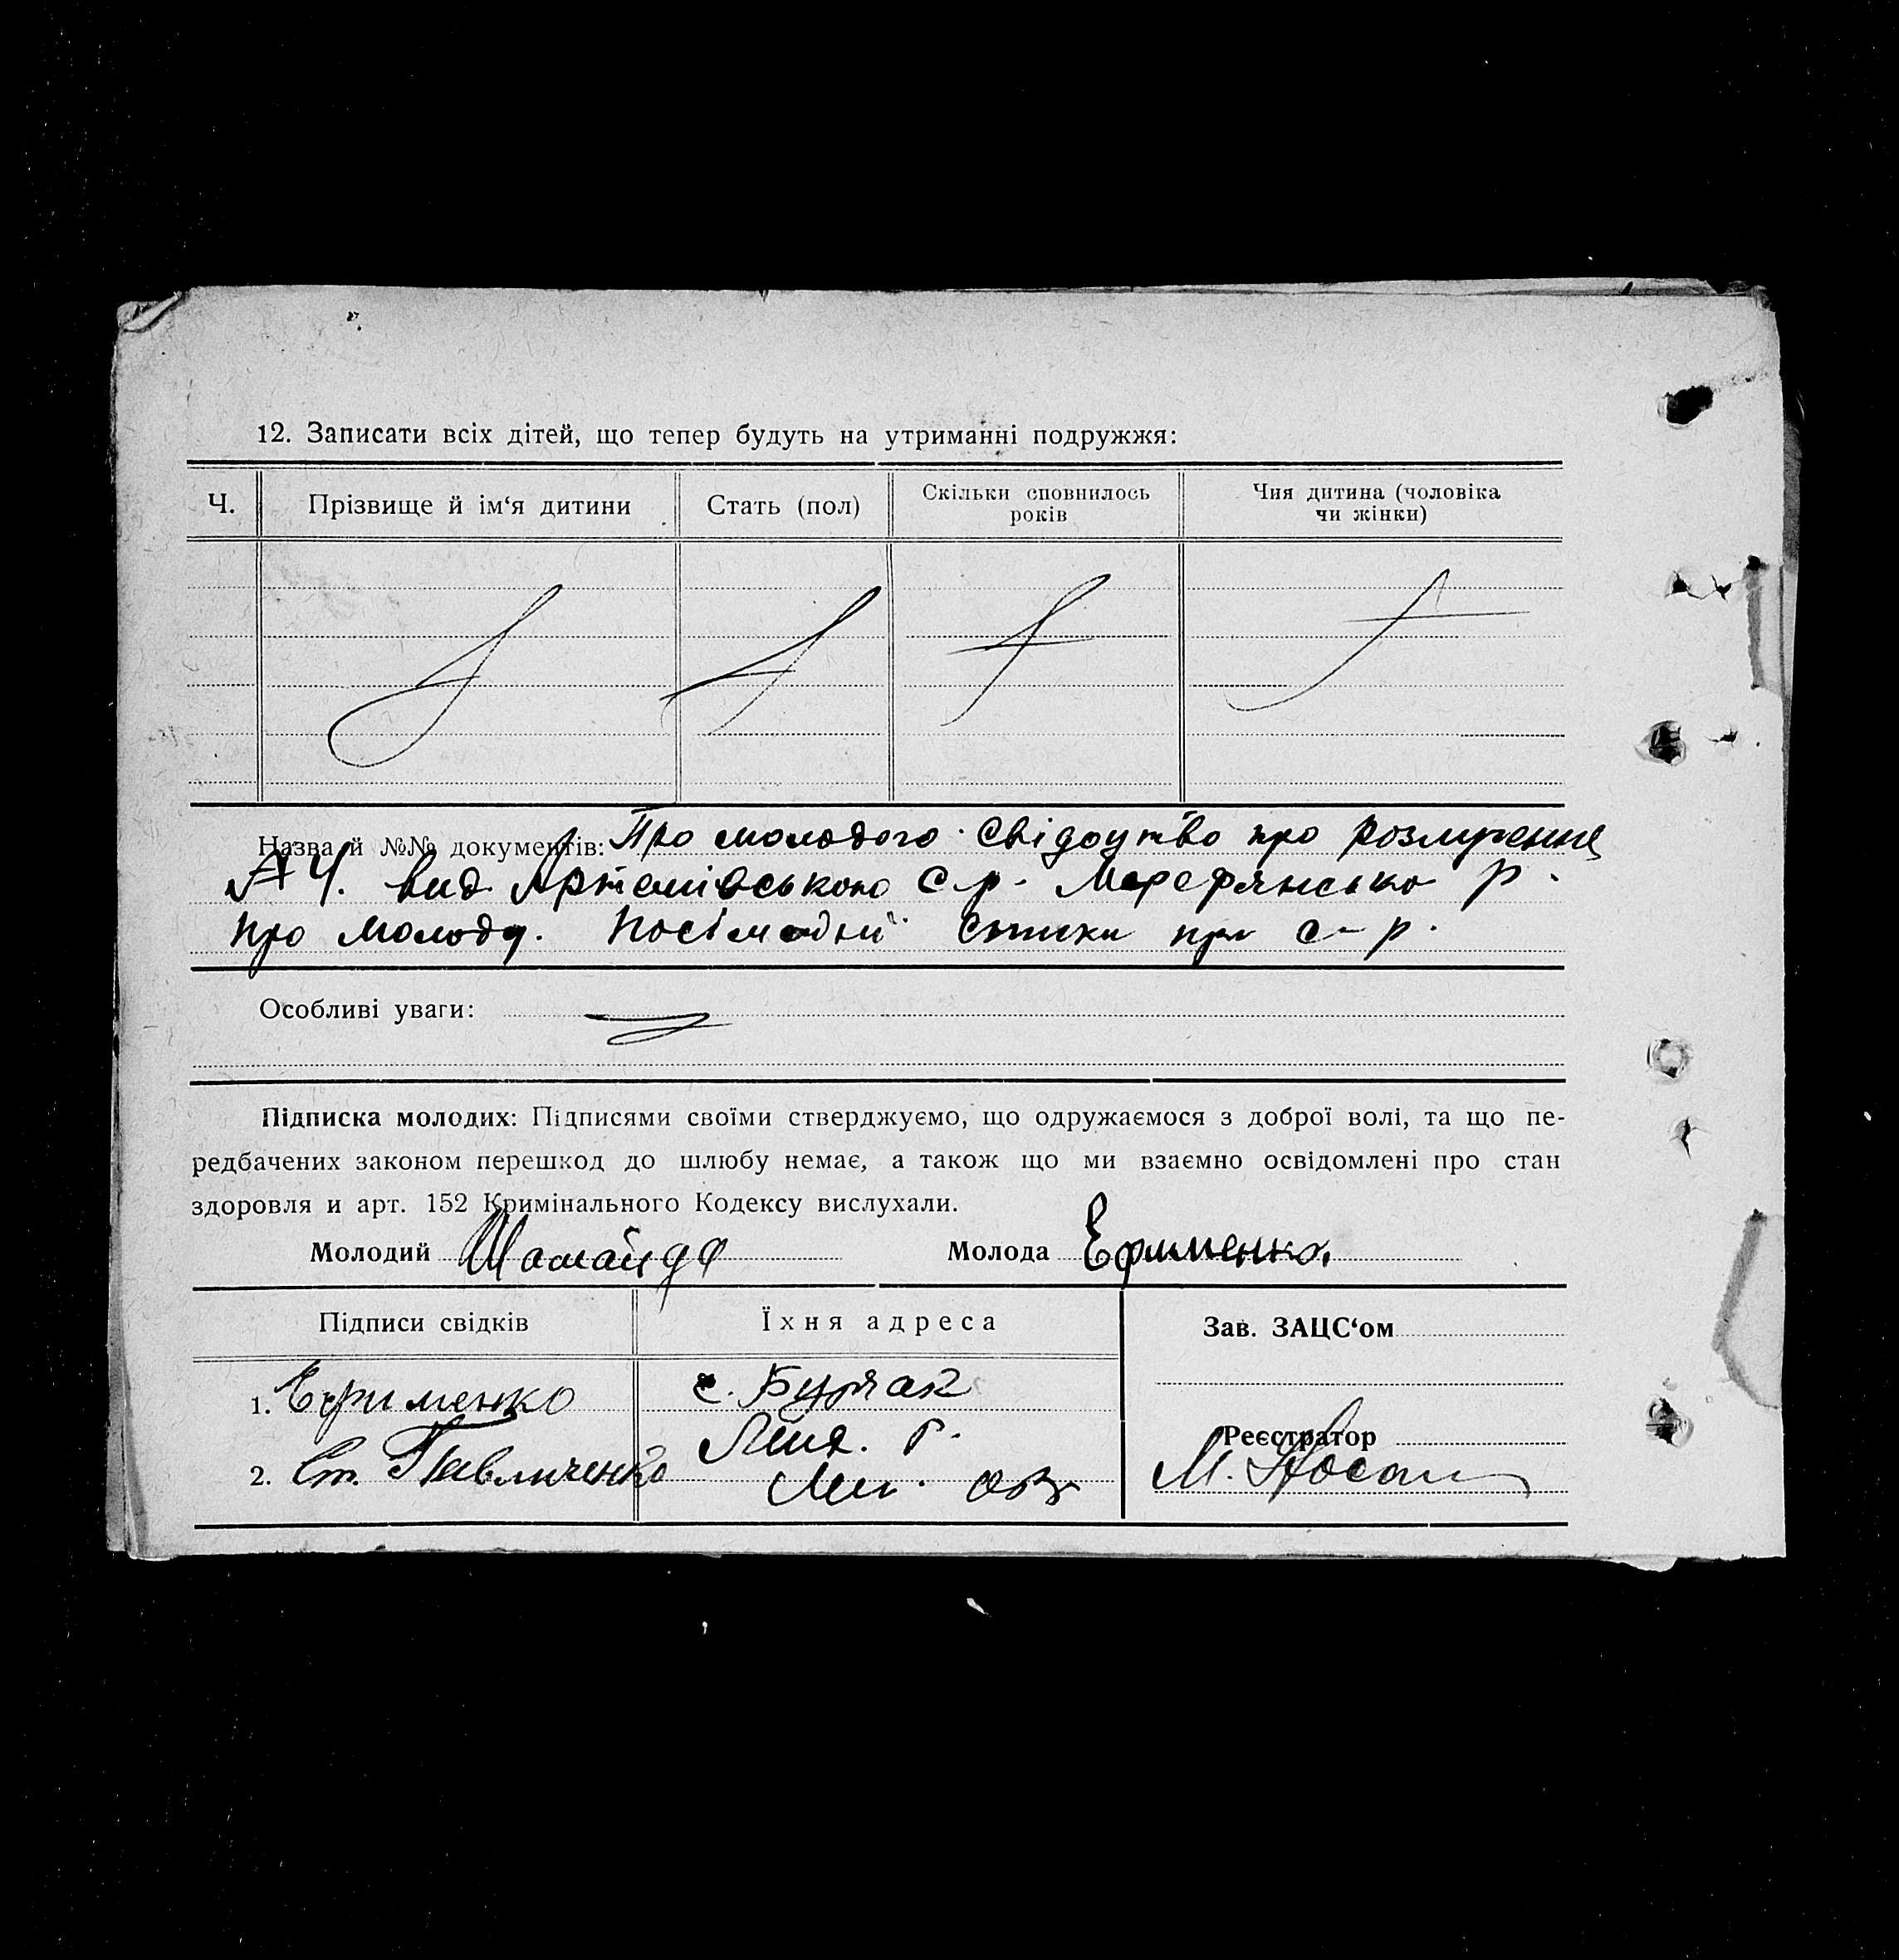 12. Записати всіх дітей, що тепер будуть на утриманні подружжя:
Ч. Прізвище й ім‘я дитини Стать (пол) Скільки сповнилось років Чия дитина (чоловіка чи жінки)
Назва й №№ документів: Про молодого свідоцтво про розлучення
№ 4. вид. Артемівською с.р. Мерефянсько р.
про молоду. Посімейні списки при с-р.
Особливі уваги:
Підписка молодих: Підписями своїми стверджуємо, що одружаємося з доброї волі, та що пе-
редбачених законом перешкод до шлюбу немає, а також що ми взаємно освідомлені про стан
здоровля и арт. 152 Кримінального Кодексу вислухали.
Молодий Молода Єфименко
Підписи свідків Їхня адреса Зав. ЗАЦС‘ом
1. Єфименко с. Бурчак
Реєстратор
2. Ст. Павличенко М. Носа